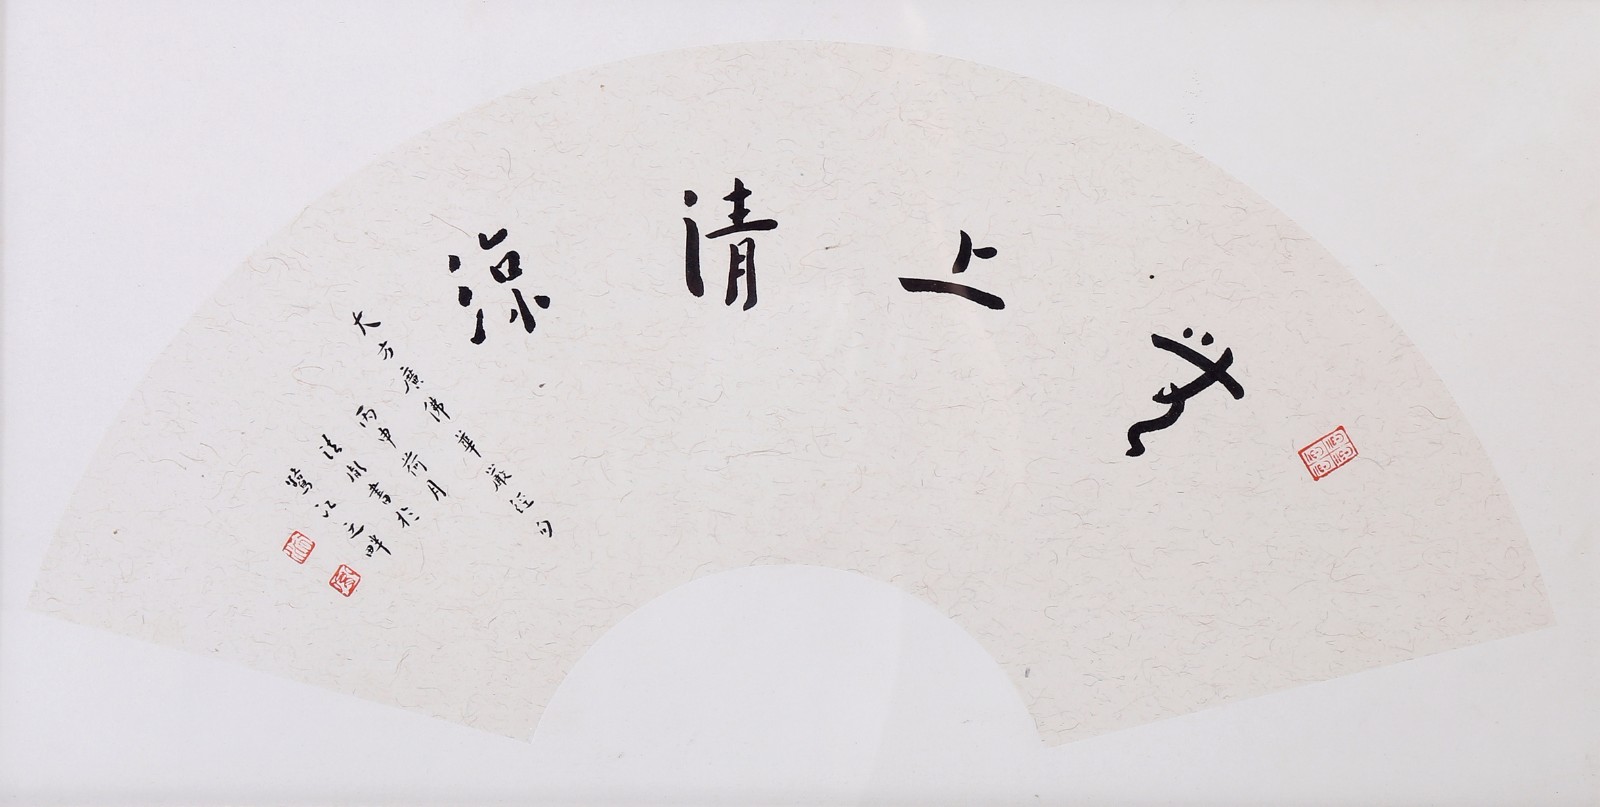 無上清涼
大方廣佛華嚴經句
丙申荷月
法胤書於
鷺江之畔